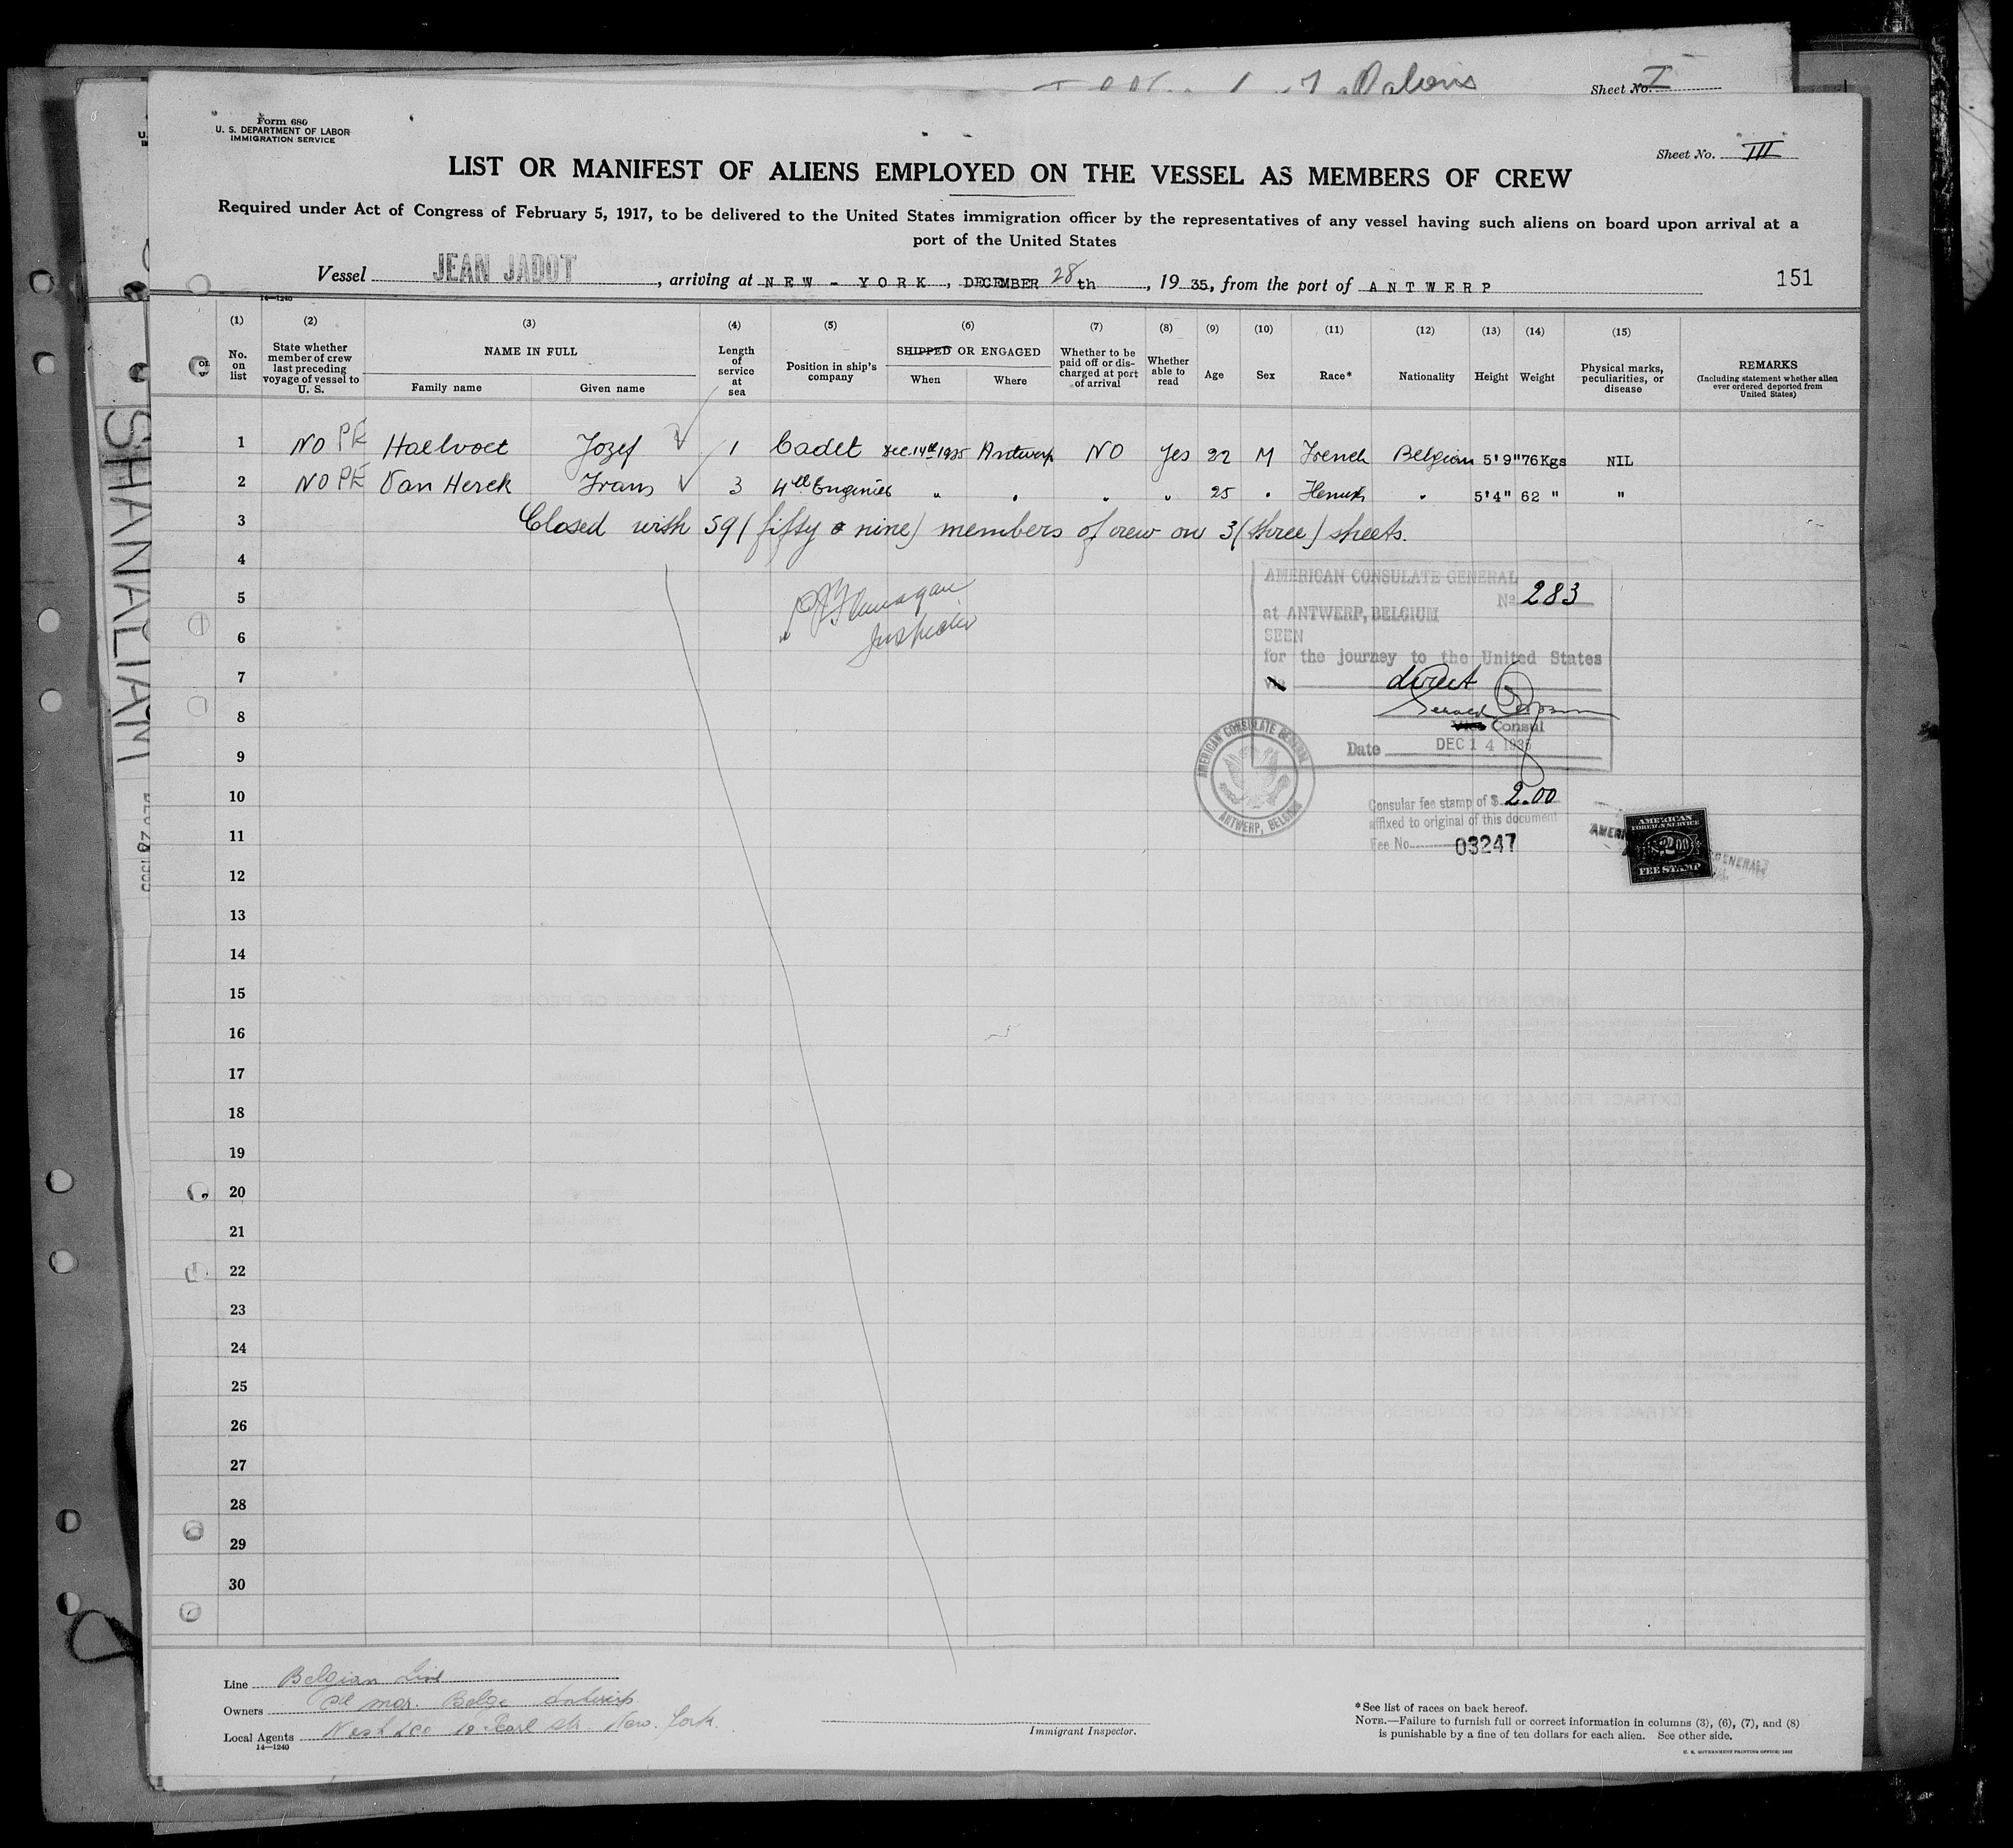 Sheet No. I
Form 680
U. S. DEPARTMENT OF LABOR
IMMIGRATION SERVICE
Sheet No. III
LIST OR MANIFEST OF ALIENS EMPLOYED ON THE VESSEL AS MEMBERS OF CREW
Required under Act of Congress of February 5, 1917, to be delivered to the United States immigration officer by the representatives of any vessel having such aliens on board upon arrival at a
port of the United States
Vessel JEAN JADOT, arriving at NEW - YORK, DECEMBER 28th, 1935, from the port of ANTWERP 151
14—1240
(1) (2) (3) (4) (5) (6) (7) (8) (9) (10) (11) (12) (13) (14) (15)
No. on list
State whether member of crew last preceding voyage of vessel to U. S.
NAME IN FULL
Family name
Given name
Length of service at sea
Position in ship's company
SHIPPED OR ENGAGED
When
Where
Whether to be paid off or discharged at port of arrival
Whether able to read
Age
Sex
Race*
Nationality
Height
Weight
Physical marks, peculiarities, or disease
REMARKS
(Including statement whether alien ever ordered deported from United States)
1 NO PE Haelvoet Jozef 1 Cadet Dec. 14th 1935 Antwerp NO Yes 22 M French Belgian 5'9" 76Kgs NIL
2 NO PE Van Herck Frans 3 4th Engineer " " " " 25 " " 5'4" 62 " "
3 Closed with 59 (fifty nine) members of crew on 3 (three) sheets.
4
5
6
7
8
9
10
11
12
13
14
15
16
17
18
19
20
21
22
23
24
25
26
27
28
29
30
Inspector
AMERICAN CONSULATE GENERAL
No 283
at ANTWERP, BELGIUM
SEEN
for the journey to the United States
via direct
Vice Consul
Date DEC 14 1935
AMERICAN CONSULATE GENERAL
ANTWERP, BELGIUM
Consular fee stamp of $ 2.00
affixed to original of this document
Fee No. 03247
AMERICAN
FOREIGN SERVICE
FEE STAMP
Line Belgian Line
Owners Cie mar. Belge Antwerp
Local Agents New York.
14—1240
Immigrant Inspector.
*See list of races on back hereof.
NOTE.—Failure to furnish full or correct information in columns (3), (6), (7), and (8)
is punishable by a fine of ten dollars for each alien. See other side.